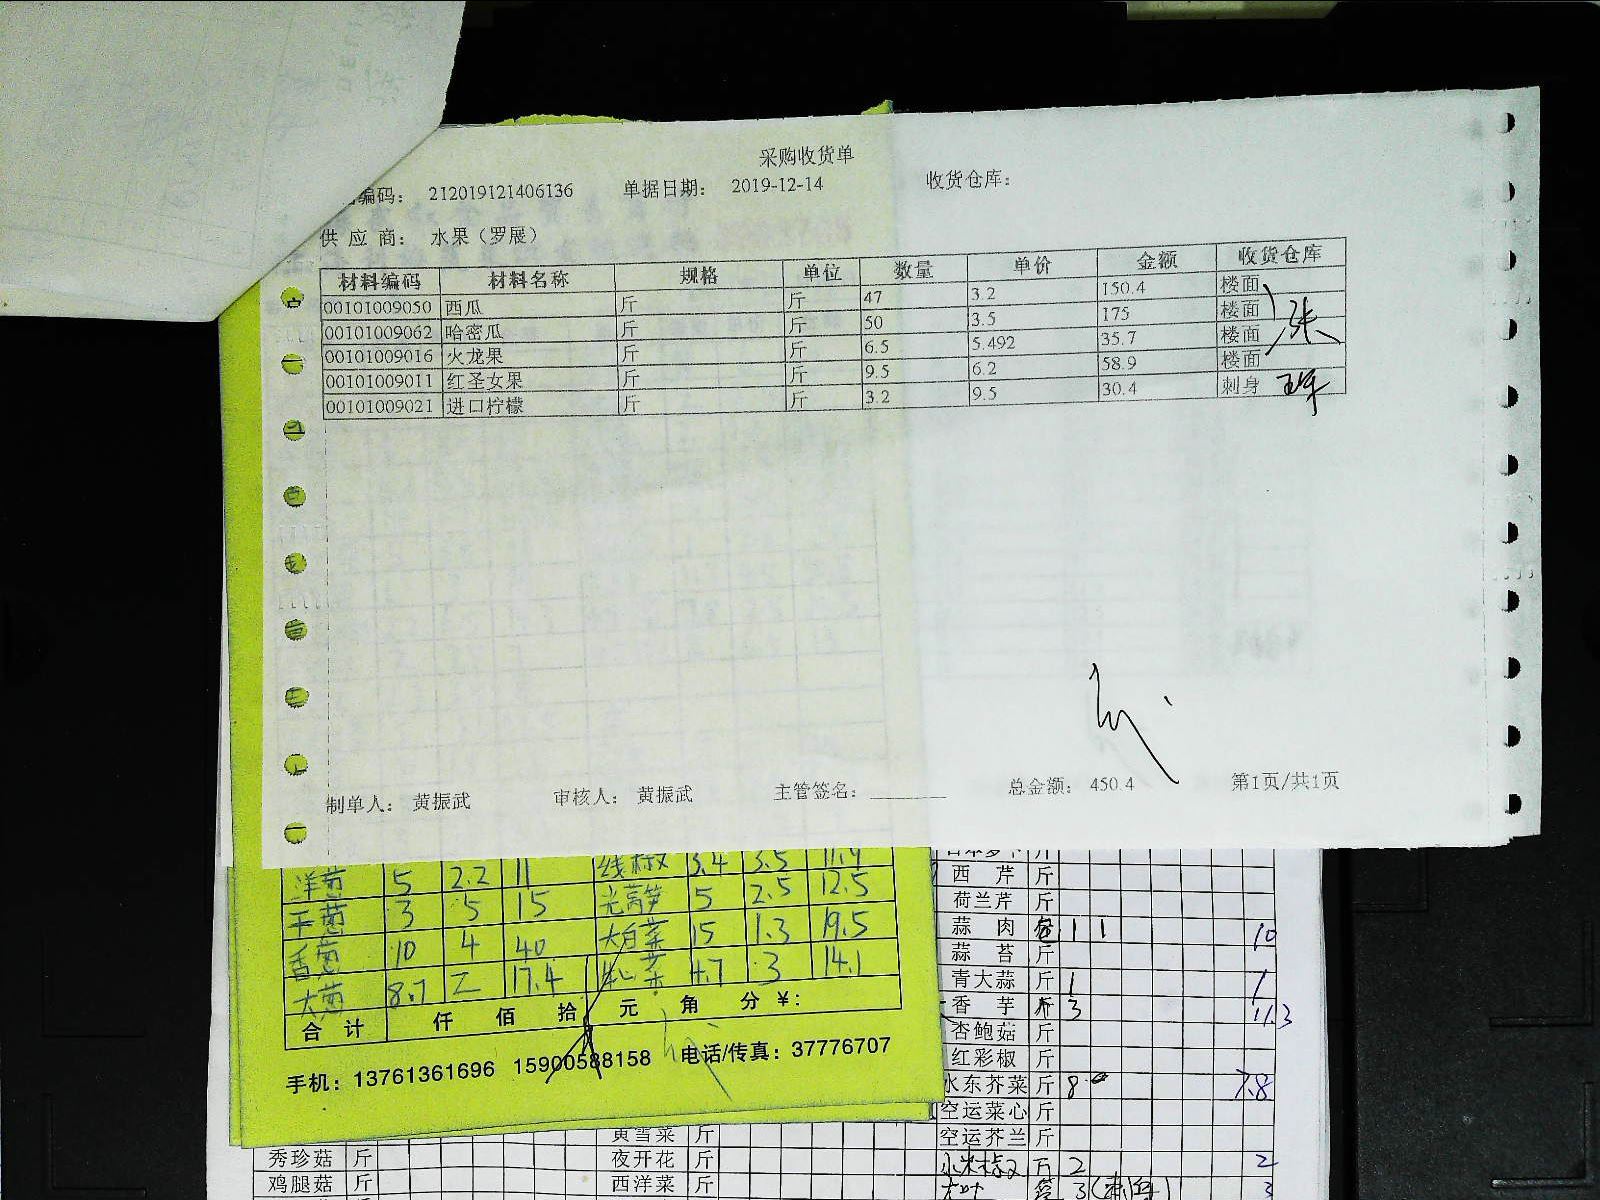 采购收货单
编码： 212019121406136 单据日期： 2019-12-14 收货仓库：
供 应 商： 水果（罗展）
材料编码 材料名称 规格 单位 数量 单价 金额 收货仓库
00101009050 西瓜 斤 斤 47 3.2 150.4 楼面
00101009062 哈密瓜 斤 斤 50 3.5 175 楼面
00101009016 火龙果 斤 斤 6.5 5.492 35.7 楼面
00101009011 红圣女果 斤 斤 9.5 6.2 58.9 楼面
00101009021 进口柠檬 斤 斤 3.2 9.5 30.4 刺身
张
制单人： 黄振武 审核人： 黄振武 主管签名： 总金额： 450.4 第1页/共1页
洋葱 5 2.2 11 线椒 3.4 3.5 11.9
干葱 3 5 15 光莴笋 5 2.5 12.5
香葱 10 4 40 大白菜 15 1.3 19.5
大葱 8.7 2 17.4 菜 4.7 3 14.1
合 计 仟 佰 拾 元 角 分 ¥:
手机：13761361696 15900588158 电话/传真：37776707
西 芹 斤
荷兰芹 斤
蒜 肉 包 1 1 10
蒜 苔 斤
青大蒜 斤 1 1
香 芋 斤 3 11.3
杏鲍菇 斤
红彩椒 斤
水东芥菜 斤 8 7.8
空运菜心 斤
黄雪菜 斤 空运芥兰 斤
秀珍菇 斤 夜开花 斤 小米椒 斤 2 2
鸡腿菇 斤 西洋菜 斤 大叶 3 3